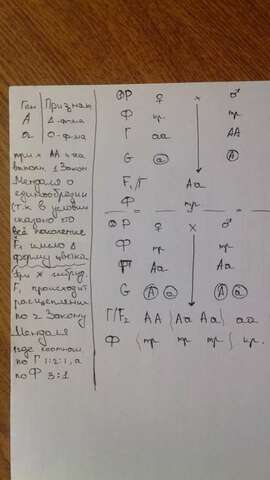 Ген | Признак
А | Δ-фма
а | О-фма
при × АА и аа
выполн. 1 Закон
Менделя о
единообразии
т.к в условии
сказано что
всё поколение
F₁ имело Δ
форму цветка
При × гибрид.
F₁ происходит
расщепление
по 2 Закону
Менделя
где соотнош
по Г 1:2:1, а
по Ф 3:1
ФР ♀ × ♂
Ф кр. тр.
Г аа АА
G а А
F₁/Г Аа
Ф тр.
ФР ♀ × ♂
Ф тр. тр.
Г Аа Аа
G А а А а
Г/F₂ АА Аа Аа аа
Ф тр. тр. тр. кр.